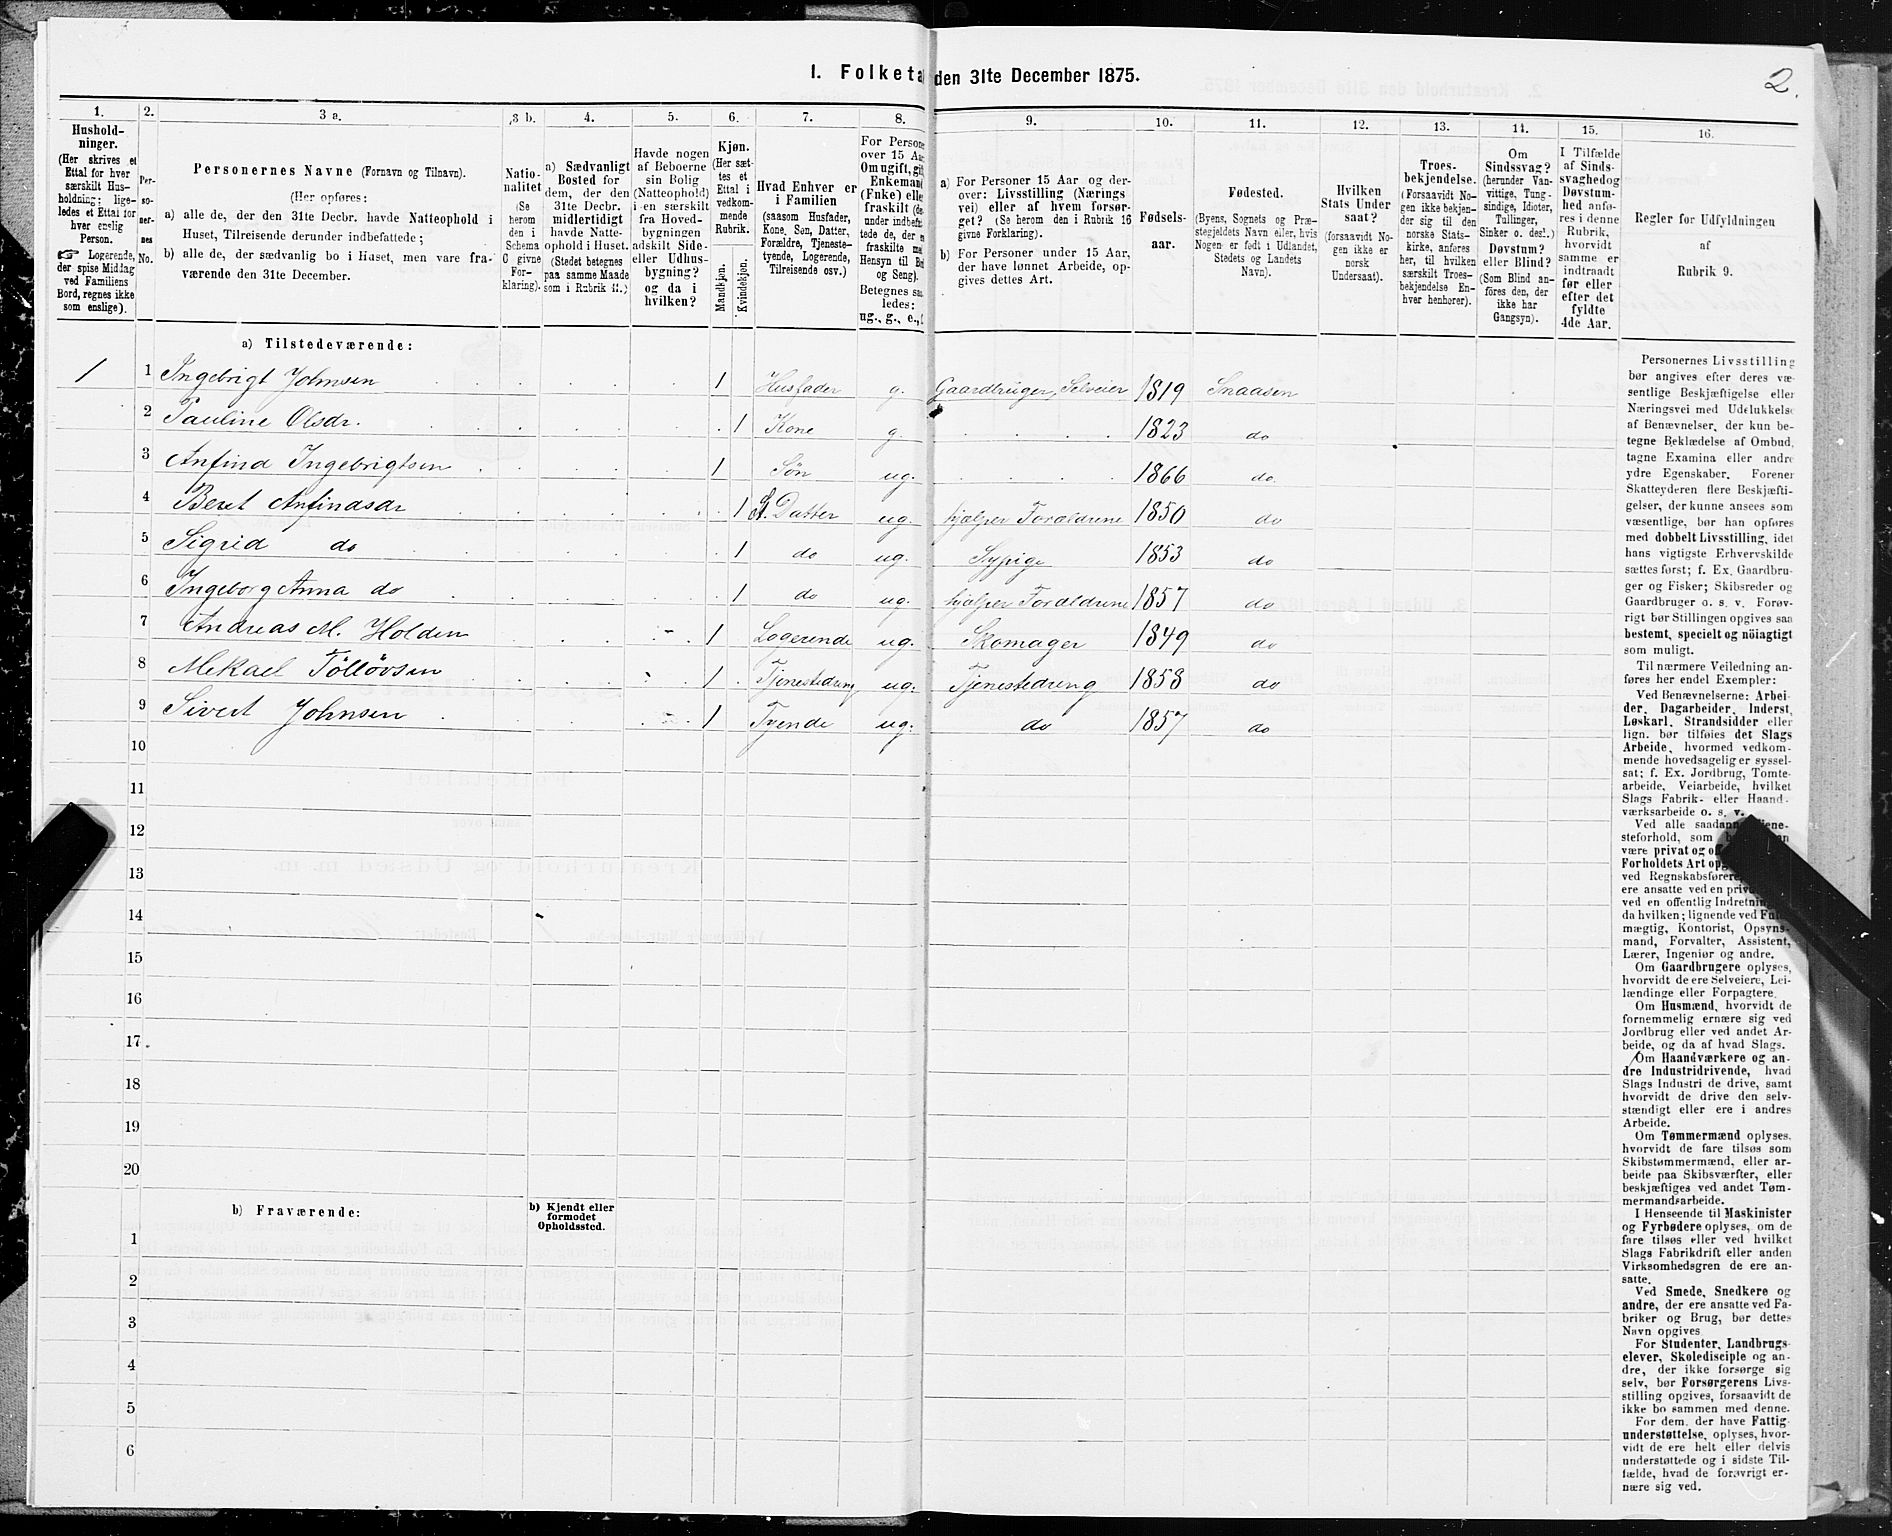 1. Folketæ den 31te December 1875.
2.
1. 2. 3 a. 3 b. 4. 5. 6. 7. 8. 9. 10. 11. 12. 13. 14. 15. 16.
Hushold-
ninger.
(Her skrives et
Ettal for hver
særskilt Hus-
holdning; lige-
ledes et Ettal for
hver enslig
Person.
☞ Logerende,
der spise Middag
ved Familiens
Bord, regnes ikke
som enslige).
Per-
so-
ner-
nes
No.
Personernes Navne (Fornavn og Tilnavn).
(Her opføres:
a) alle de, der den 31te Decbr. havde Natteophold i
Huset, Tilreisende derunder indbefattede;
b) alle de, der sædvanlig bo i Huset, men vare fra-
værende den 31te December.
Natio-
nalitet
(Se
herom
den i
Schema
C givne
For-
klaring).
a) Sædvanligt
Bosted for
dem, der den
31te Decbr.
midlertidigt
havde Natte-
ophold i Huset.
(Stedet betegnes
paa samme Maade
som i Rubrik 11.)
Havde nogen
af Beboerne
sin Bolig
(Natteophold)
i en særskilt
fra Hoved-
bygningen
adskilt Side-
eller Udhus-
bygning?
og da i
hvilken?
Kjøn.
(Her sæt-
tes et
Ettal i
vedkom-
mende
Rubrik.
Mandkjøn.
Kvindekjøn.
Hvad Enhver er
i Familien
(saasom Husfader,
Kone, Søn, Datter,
Forældre, Tjeneste-
tyende, Logerende,
Tilreisende osv.)
For Persone
over 15 Aa
Om ugift, gi
Enkeman
(Enke) elle
fraskilt (de
under indbefa
tede de, der e
fraskilte me
Hensyn til Bo
og Seng).
Betegnes saa
ledes:
ug., g., e., f
a) For Personer 15 Aar og der-
over: Livsstilling (Nærings
vei) eller af hvem forsør-
get? (Se herom den i Rubrik 16
givne Forklaring).
b) For Personer under 15 Aar,
der have lønnet Arbeide, op-
gives dettes Art.
Fødsels-
aar.
Fødested.
(Byens, Sognets og Præ-
stegjeldets Navn eller, hvis
Nogen er født i Udlandet,
Stedets og Landets
Navn).
Hvilken
Stats Under
saat?
(forsaavidt No-
gen ikke er
norsk
Undersaat).
Troes-
bekjendelse.
(Forsaavidt No-
gen ikke bekjen-
der sig til den
norske Stats-
kirke, anføres
her, til hvilken
særskilt Troes-
bekjendelse En-
hver henhorer).
Om
Sindssvag?
(herunder Van-
vittige, Tung-
sindige, Idioter,
Tullinger,
Sinker o. desl.)
Døvstum?
eller Blind?
(Som Blind an-
föres den, der
ikke har
Gangsyn).
I Tilfælde
af Sinds-
svaghed og
Døvstum-
hed anfø-
res i denne
Rubrik,
hvorvidt
samme er
indtraadt
før eller
efter det
fyldte
4de Aar.
Regler for Udfyldningen
af
Rubrik 9.
a) Tilstedeværende:
1 1 Ingebrigt Johnsen 1 Husfader g. Gaardbruger, Selveier 1819 Snaasen
2 Pauline Olsdr. 1 Kone g. 1823 do
3 Anfind Ingebrigtsen 1 Søn ug. 1866 do.
4 Beret Anfindsdr 1 Datter ug. hjælper Forældrene 1850 do
5 Sigrid do 1 do ug. Sypige 1853 do
6 Ingeborg Anna do 1 do ug. hjælper Forældrene 1857 do
7 Andreas M. Holden 1 Logerende ug. Skomager 1849 do
8 Mekael Töllövsen 1 Tjenestedreng ug. Tjenestedreng 1858 do
9 Sivert Johnsen 1 Tyende ug. do 1857 do
10
11
12
13
14
15
16
17
18
19
20
b) Fraværende:
b) Kjendt eller
formodet
Opholdssted.
1
2
3
4
5
6
Personernes Livsstilling
bør angives efter deres væ-
sentlige Beskjæftigelse eller
Næringsvei med Udelukkelse
af Benævnelser, der kun be-
tegne Beklædelse af Ombud,
tagne Examina eller andre
ydre Egenskaber. Forener
Skatteyderen flere Beskjæfti-
gelser, der kunne ansees som
væsentlige, bør han opføres
med dobbelt Livsstilling, idet
hans vigtigste Erhvervskilde
sættes først; f. Ex. Gaardbru-
ger og Fisker; Skibsreder og
Gaardbruger o. s. v. Forøv-
rigt bør Stillingen opgives saa
bestemt, specielt og nöiagtigt
som muligt.
Til nærmere Veiledning an-
føres her endel Exempler:
Ved Benævnelserne: Arbei-
der, Dagarbeider, Inderst,
Løskarl, Strandsidder eller
lign. bør tilføies det Slags
Arbeide, hvormed vedkom-
mende hovedsagelig er syssel-
sat; f. Ex. Jordbrug, Tomte-
arbeide, Veiarbeide, hvilket
Slags Fabrik- eller Haand-
værksarbeide o. s. v.
Ved alle saadanne Tjene-
steforhold, som
være privat og of
Forholdets Art opg
ved Regnskabsførere,
ere ansatte ved en priv
ved en offentlig Indretnin
da hvilken; lignende ved Fuld
mægtig, Kontorist, Opsyns-
mand, Forvalter, Assistent,
Lærer, Ingeniør og andre.
Om Gaardbrugere oplyses,
hvorvidt de ere Selveiere, Lei-
lændinge eller Forpagtere.
Om Husmænd, hvorvidt de
fornemmelig ernære sig ved
Jordbrug eller ved andet Ar-
beide, og da af hvad Slags.
Om Haandværkere og an-
dre Industridrivende, hvad
Slags Industri de drive, samt
hvorvidt de drive den selv-
stændigt eller ere i andres
Arbeide.
Om Tømmermænd oplyses,
hvorvidt de fare tilsøs som
Skibstømmermænd, eller ar-
beide paa Skibsværfter, eller
beskjæftiges ved andet Tøm-
mermandsarbeide.
I Henseende til Maskinister
og Fyrbødere oplyses, om de
fare tilsøs eller ved hvilket
Slags Fabrikdrift eller anden
Virksomhedsgren de ere an-
satte.
Ved Smede, Snedkere og
andre, der ere ansatte ved Fa-
briker og Brug, bør dettes
Navn opgives
For Studenter, Landbrugs-
elever, Skoledisciple og an-
dre, der ikke forsørge sig
selv, bør Forsørgerens Livs-
stilling opgives, forsaavidt de
ikke bo sammen med denne.
For dem, der have Fattig
understøttelse, oplyses, hvor-
vidt de ere helt eller delvis
understøttede og i sidste Til-
fælde, hvad de forøvrigt er-
nære sig ved.